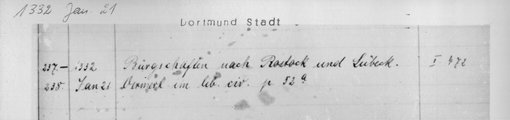 1332 Jan. 21
Dortmund Stadt
237– 1332 Bürgschaften nach Rostock und Lübeck. I 472
238. Jan 21 im lib. civ. p 52a